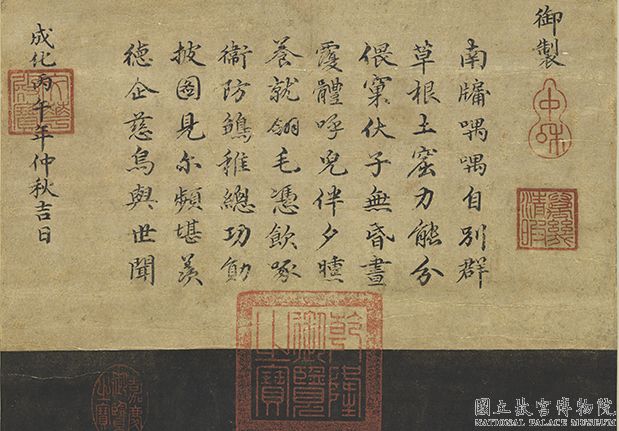 御製
中和
萬幾清暇
南牖喁喁自別群
草根土窟力能分
偎窠伏子無昏晝
覆體呼兒伴夕曛
養就翎毛憑飲啄
衛防鶵稚總功勤
披圖見尔頻堪羨
德企慈烏與世聞
成化丙午年仲秋吉日
乾隆御覽之寶
嘉慶御覽之寶
國立故宮博物院
NATIONAL PALACE MUSEUM